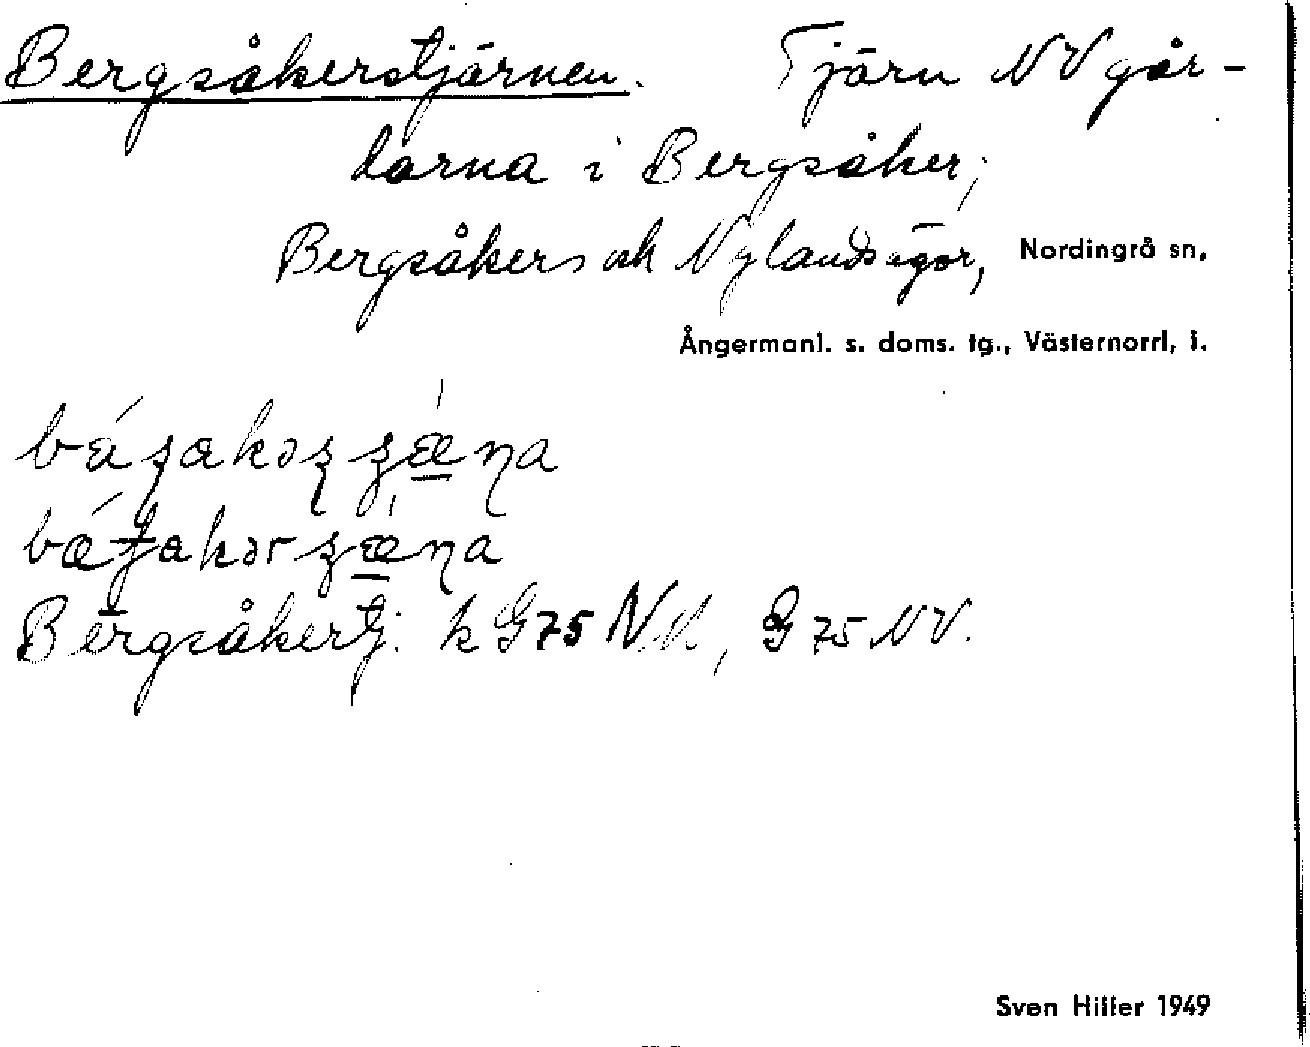 Bergsåkerstjärnen. Tjärn NV går-
darna i Bergsåker;
Bergsåkers och Nylands ägor, Nordingrå sn,
Ångermanl. s. doms. tg., Västernorrl. l.
Bergsåkerstj. k G75 NV, G 75 NV.
Sven Hiller 1949